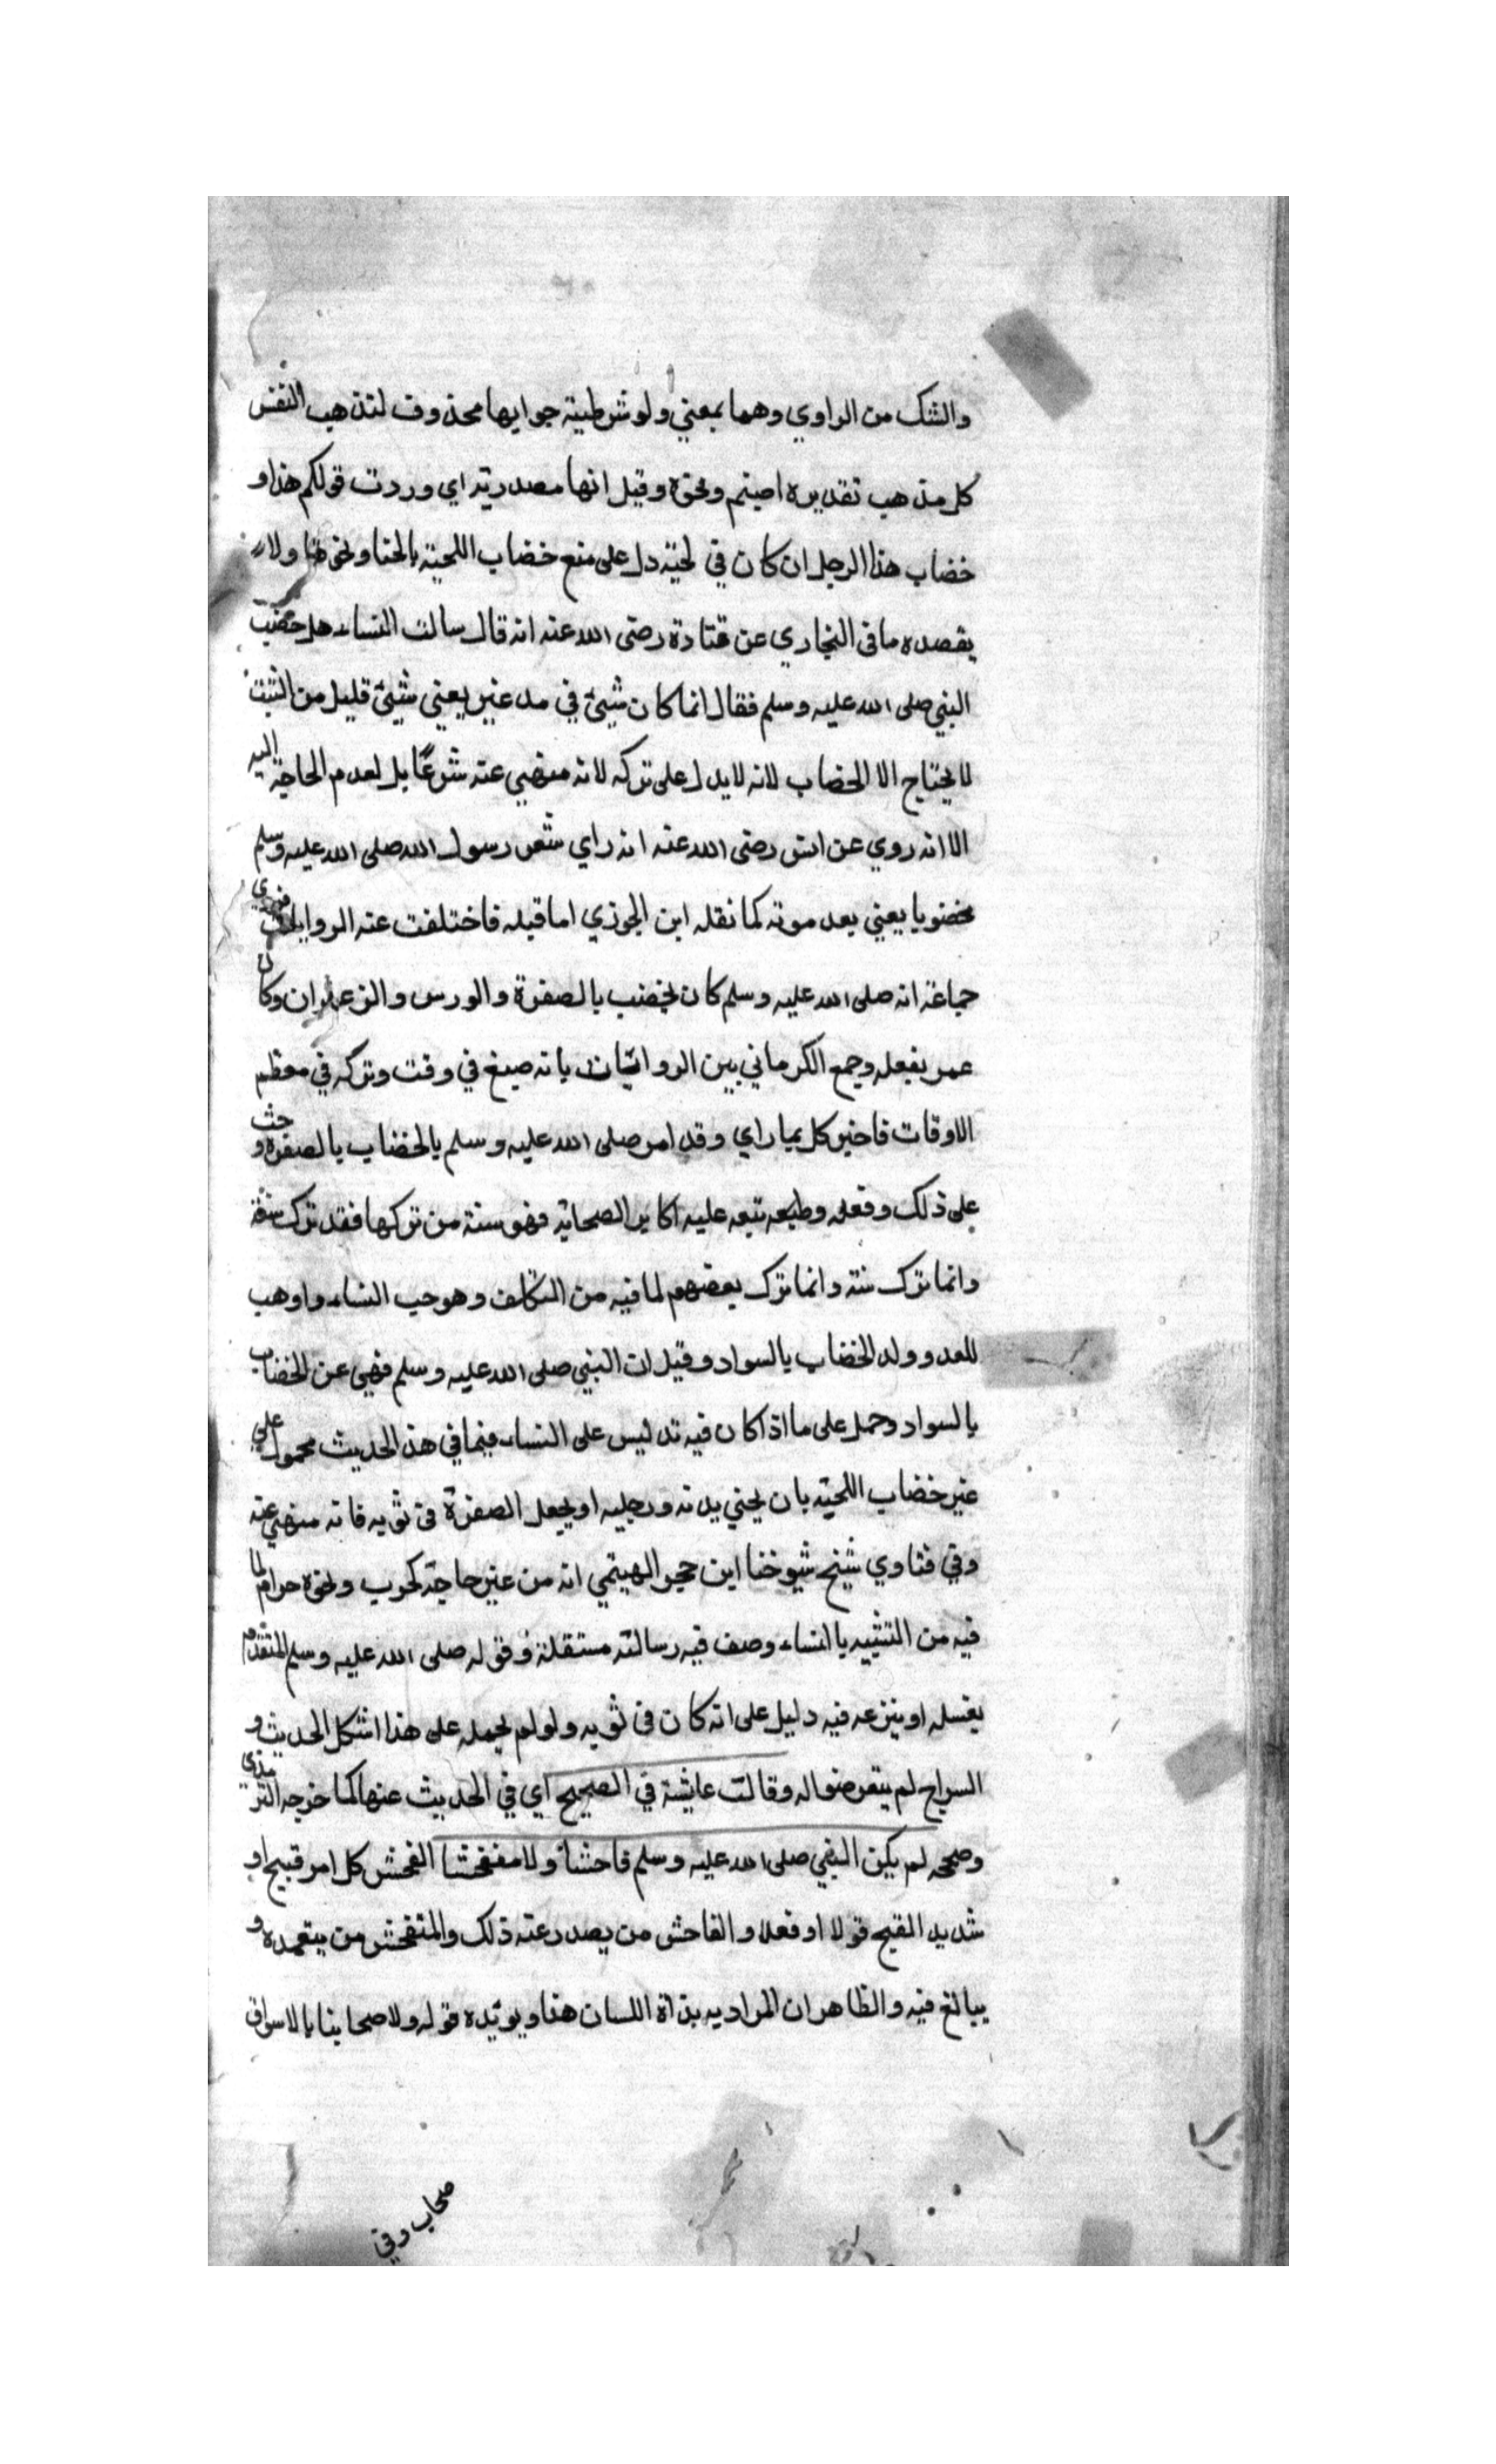 والشك من الراوي وهما بمعني ولو شرطية جوابها محذوف لتذهب النفس
كل مذهب تقديره اصبتم ونحوه وقيل انها مصدرية اي وردت قولكم هذا و
خضاب هذا الرجل ان كان في لحية دل على منع خضاب اللحية بالحنا ونحوها ولا
يقصده ما في البخاري عن قتادة رضى الله عنه انه قال سالت النساء هل خضب
النبي صلى الله عليه وسلم فقال انما كان شيئ في صدغيه يعني شيئ قليل من الشيب
لا يحتاج الا الخضاب لانه لا يدل على تركه لانه منهي عنه شرعًا بل لعدم الحاجة اليه
الا انه روي عن انس رضى الله عنه انه راي شعر رسول الله صلى الله عليه وسلم
مخضوبا يعني بعد موته كما نقله ابن الجوزي اما قبله فاختلفت عنه الروايات فروي
جماعة انه صلى الله عليه وسلم كان يخضب بالصفرة والورس والزعفران وكان
عمر يفعله وجمع الكرماني بين الروايتان بانه صبغ في وقت وتركه في معظم
الاوقات فاخبر كل بما راي وقد امر صلى الله عليه وسلم بالخضاب بالصفرة وحث
على ذلك وفعله وطبعه تبعه عليه اكابر الصحابة فهو سنة من تركها فقد ترك سنة
وانما ترك سنة وانما ترك بعضهم لما فيه من التكلف وهو حب النساء واوهب
للعدو ولد الخضاب بالسواد وقيل ان النبي صلى الله عليه وسلم فهى عن الخضاب
بالسواد وحمل على ما اذا كان فيه تدليس على النساء فيما في هذ الحديث محمول علي
غير خضاب اللحية بان يحني يديه ورجليه او يجعل الصفرة فى ثوبه فانه منهي عنه
وفي فتاوي شيخ شيوخنا ابن حجر الهيتمي انه من غير حاجة كحرب ونحوه حرام لما
فيه من التشبيه بالنساء وصف فيه رسالته مستقلة وقوله صلى الله عليه وسلم المتقدم
يغسله او ينزعه فيه دليل على انه كان فى ثوبه ولو لم يحمله على هذا اشكل الحديث و
السراج لم يتعرضوا له وقالت عايشة في الصحيح اي في الحديث عنها كما خرجه الترمذي
وصححه لم يكن النبي صلى الله عليه وسلم فاحشاً ولا متفحشا الفحش كل امر قبيح او
شديد القبح قولا او فعلا والفاحش من يصدر عنه ذلك والمتفحش من يتعمده و
يبالغ فيه والظاهر ان المراد به بذاة اللسان هنا ويويده قوله ولا صحابنا بالاسواق
صخاب وفي